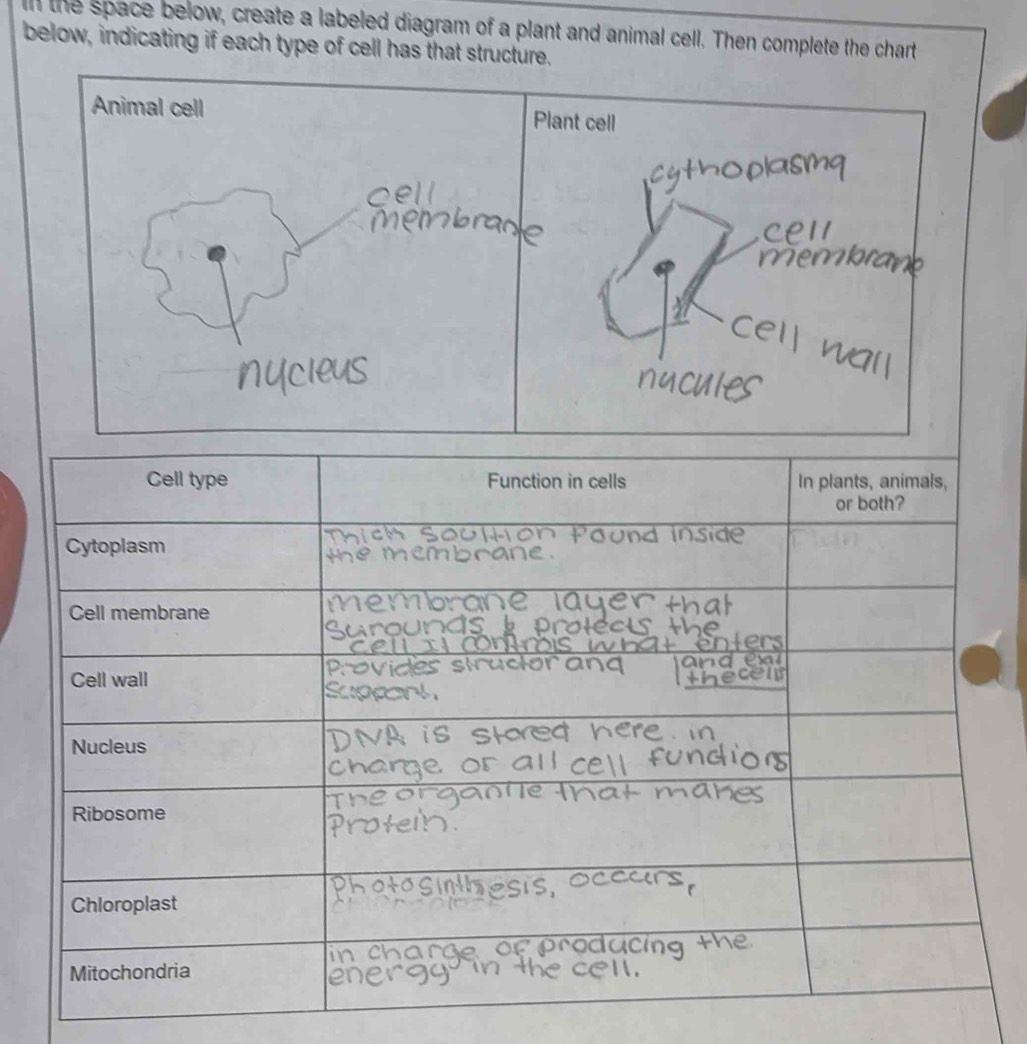 In the space below, create a labeled diagram of a plant and animal cell. Then complete the chart
below, indicating if each type of cell has that structure.
Animal cell
cell
membrane
nucleus
Plant cell
cythoplasma
cell
membrane
cell wall
nucules
Cell type
Function in cells
In plants, animals,
or both?
Cytoplasm
Thich soultion found inside
the membrane.
Cell membrane
membrane layer that
surounds & protects the
cell it controls what enters
and exit
the cells
Cell wall
Provides structor and
support.
Nucleus
DNA is stored here. in
charge or all cell functions
Ribosome
The organlle that makes
Protein.
Chloroplast
Photosinthesis, occurs,
Mitochondria
in charge of producing the
energy in the cell.